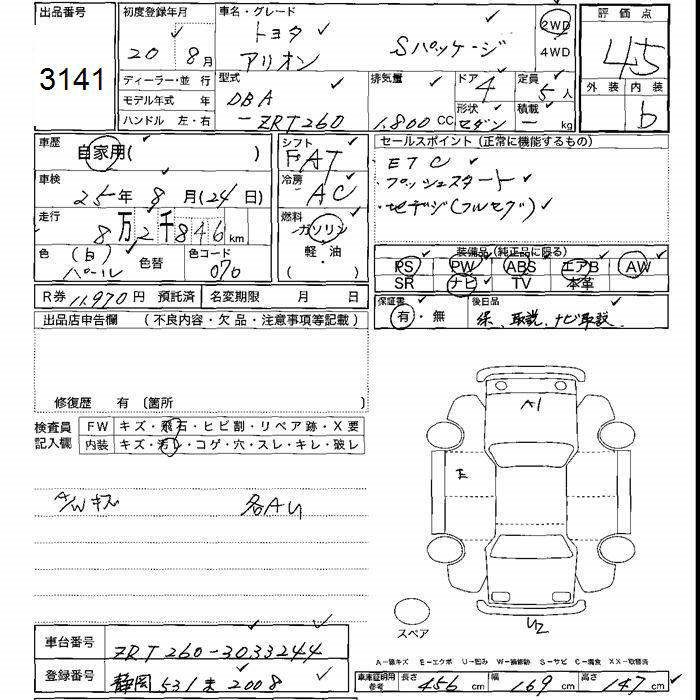 出品番号
3141
初度登録年月
20 8月
車名・グレード
トヨタ
アリオン Sパッケージ
2WD
4WD
評価点
4.5
外装 内装
b
ディーラー・並行
モデル年式 年
ハンドル 左・右
型式
DBA
-ZRT260
排気量
1,800 CC
ドア
4
形状
セダン
定員
5人
積載
- kg
車歴
自家用( )
車検
25年8月(24日)
走行
8万2千846km
色 (白)
パール
色替
色コード
070
シフト
FAT
冷房
AC
燃料
ガソリン
軽油
セールスポイント(正常に機能するもの)
・ETC
・プッシュスタート
・地デジ(フルセグ)
装備品(純正品に限る)
PS PW ABS エアB AW
SR ナビ TV 本革
R券 11,970円 預託済 名変期限 月 日
保証書
有・無
後日品
保、取説、ナビ取説
出品店申告欄 (不良内容・欠品・注意事項等記載)
修復歴 有 〔箇所 〕
検査員
記入欄
FW キズ・飛石・ヒビ割・リペア跡・X要
内装 キズ・汚レ・コゲ・穴・スレ・キレ・破レ
A/Wキズ 各AU
A1
E
U2
スペア
A-線キズ E-エクボ U-凹み W-補修跡 S-サビ C-腐食 XX-取替済
車台番号
ZRT260-3033244
登録番号
静岡 531 ま 2008
車庫証明用
参考
長さ 456 cm 幅 169 cm 高さ 147 cm